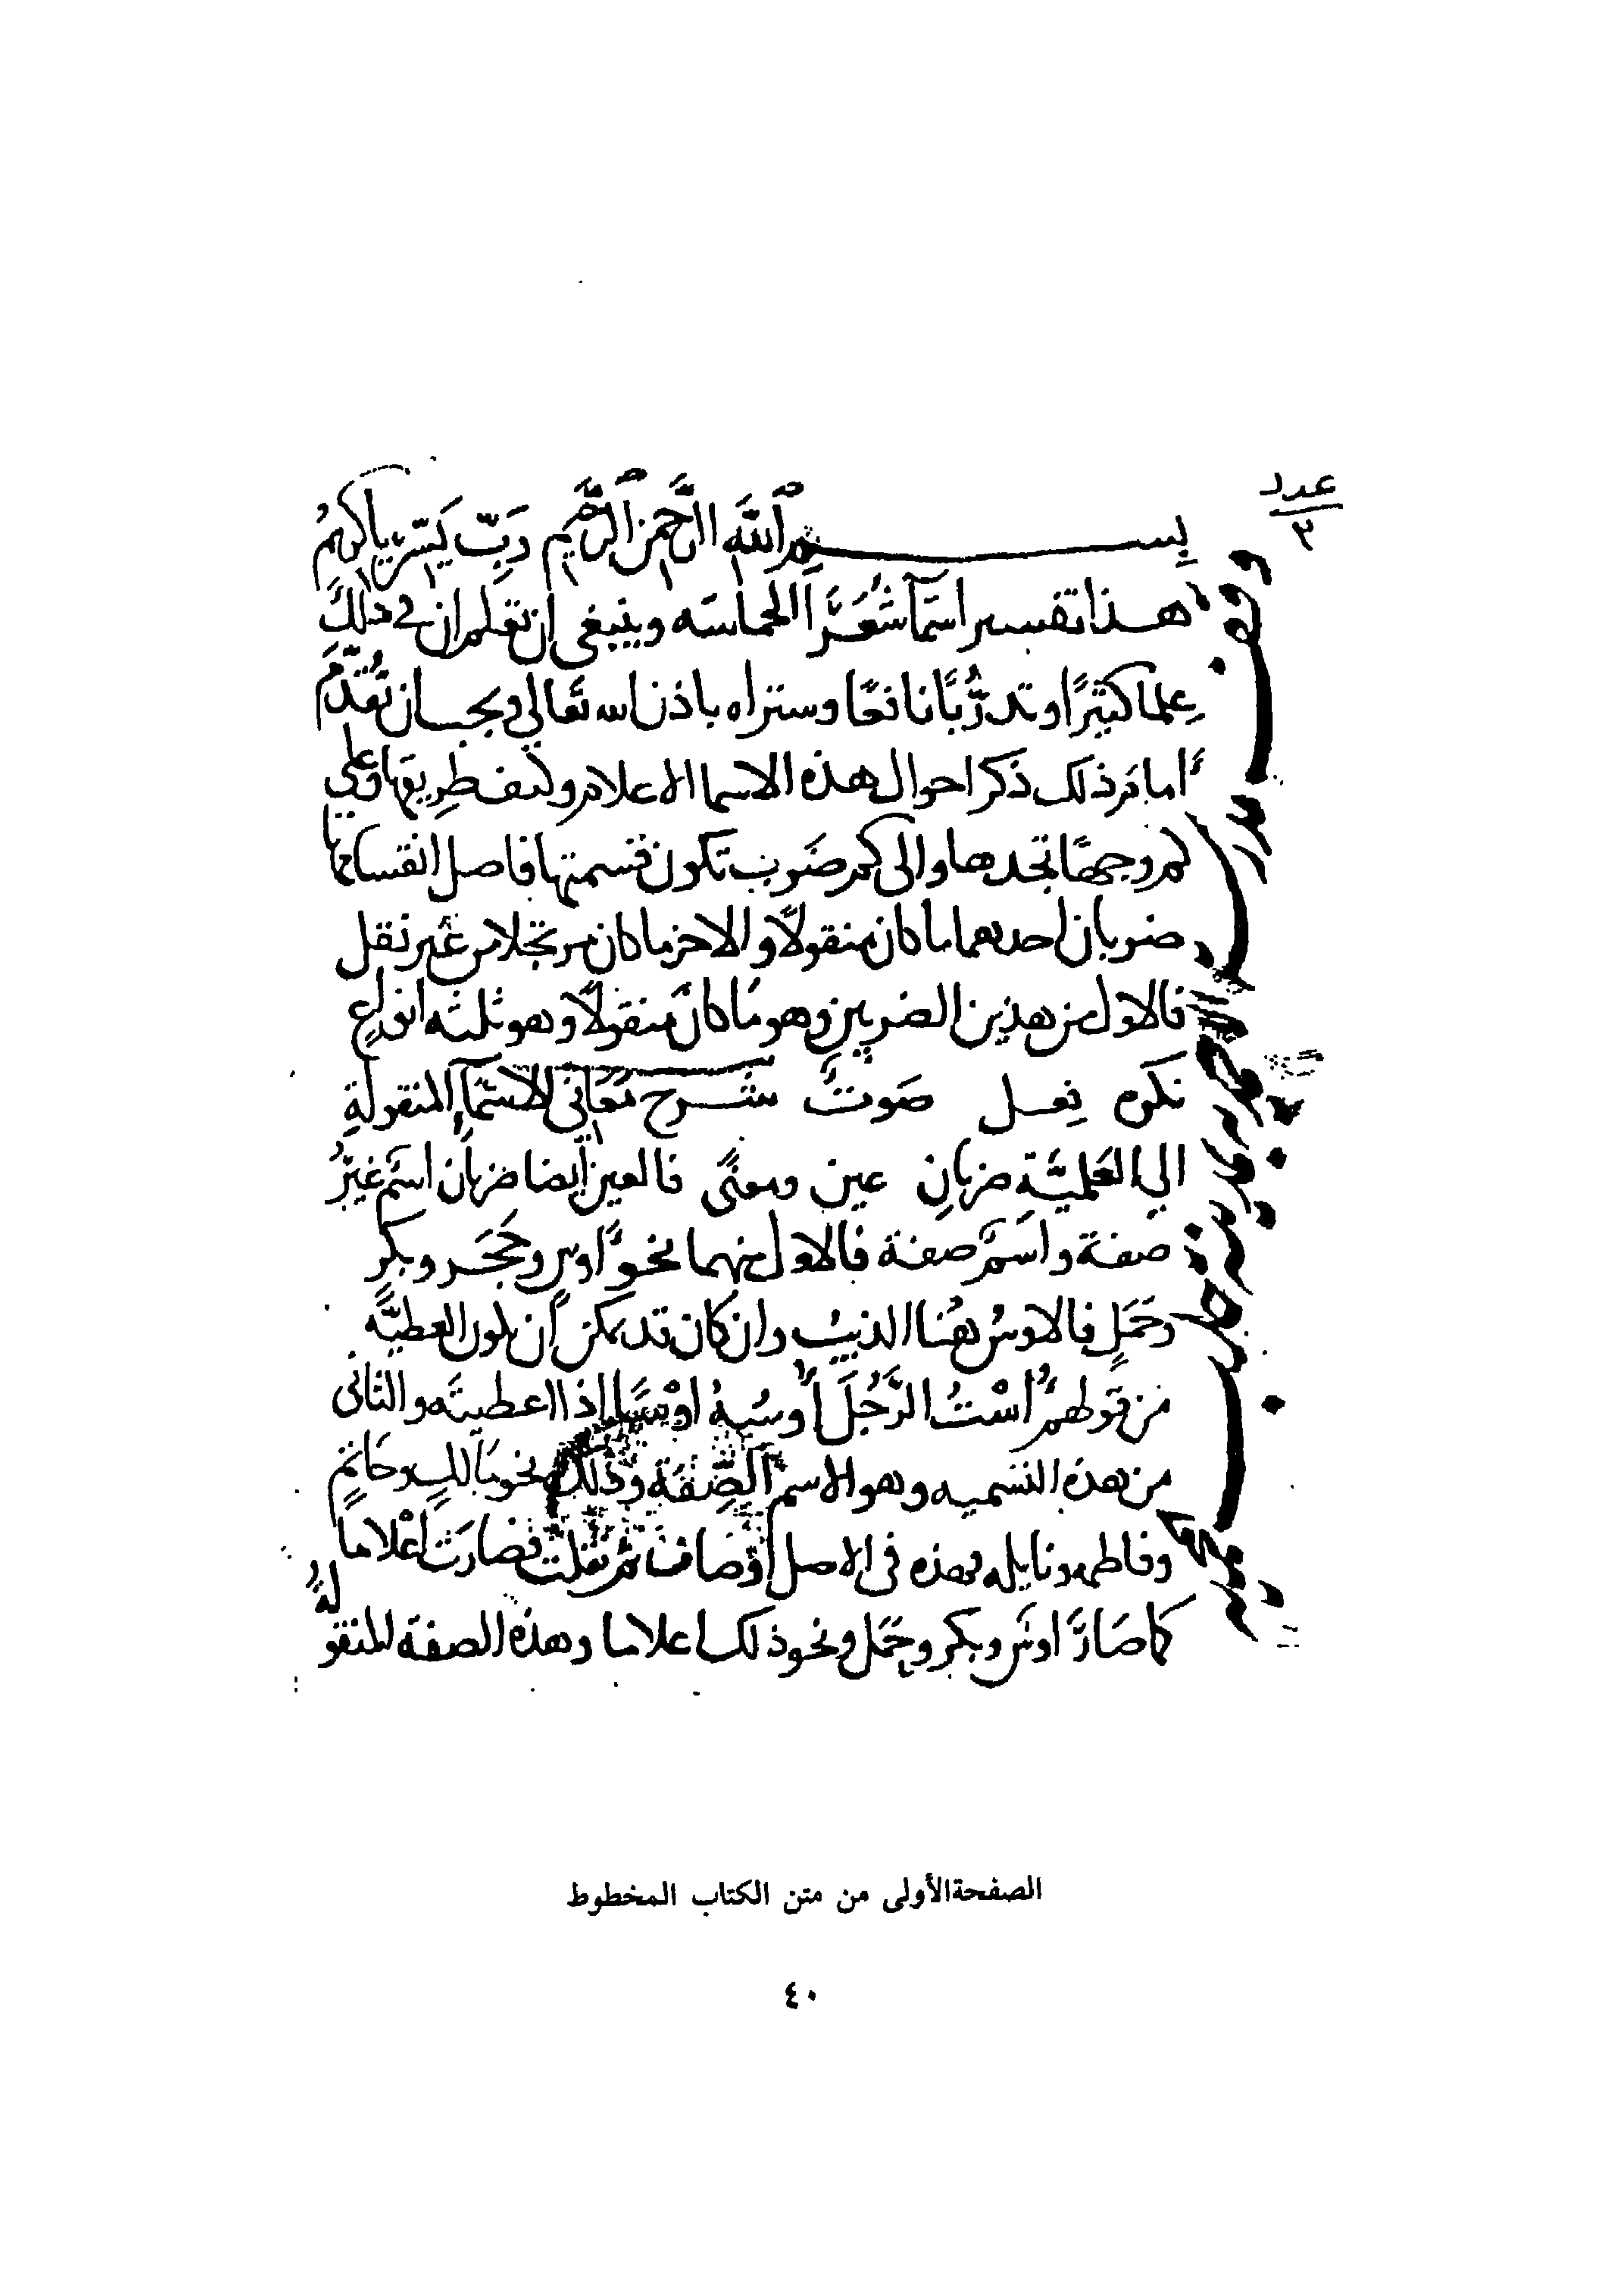 عدد
٣
بسم الله الرحمن الرحيم رَبِّ يَسِّر يا كريمُ
هذا تفسير اسمآ شُعَرَآ الحماسَه وينبغى ان تعلم ان في ذلكَ
عِلما كثيرًا وتدرُّبًا نافعًا وستراه باذن الله تعَالى ويجب ان تُقدِّمَ
أمام ذلك ذكر احوال هذه الاسما الاعلام وكيف طريقها وعلى
كم وجهًا تجدها والى كم ضَرب تكون قسمتها فاصل انقسامها
ضربان احدهما ما كان منقولًا والاخر ما كان مرتجلا من غير نقل
فالاول من هذين الضربين وهو ما كان منقولًا وهو ثلثه انواع
نكره فعل صَوتٌ شرح مَعَانى الاسْمآءِ المنقولةِ
الي العَلميَّةِ ضربانِ عين ومعنًى فالعين أيضا ضربان اسم غيرُ
صفة واسمٌ صفة فالاول منهما نحوُ اوس وحَجَر وبكرٍ
وجَمَلٍ فالاوسُ هُنا الذيبُ وان كان قد يمكن أن يكون العطيَّه
من قولهم أُسْتُ الرَّجُلَ أوسُهُ اوْسًا إذا اعطيته والثانى
من هذه القسميه وهو الاسم الصِّفَة وذلك نحو مالك وحَاتِمٍ
وفاطمه ونايله فهذه فى الاصل أوصاف ثم نقلت فصارَت اعْلامًا
كما صَارَ اوس وبكر وجَمَل ونحو ذلك اعلاما وهذه الصفة المنقولةُ
الصفحة الأولى من متن الكتاب المخطوط
٤٠